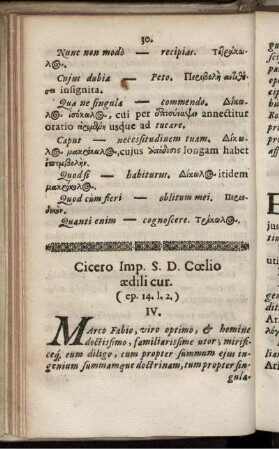 30.
Nunc non modò — recipias. Τετράκω-
λ@.
Cujus dubia — Peto. Περιβολὴ
insignita.
Qua ne singula — commendo. Δίκω-
λ@. cui per annectitur
oratio usque ad tueare.
Caput — necessitudinem tuam. Δίκω-
λ@. cujus longam habet
Quodsi — habiturus. Δίκωλ@. itidem
Quod cùm fieri — oblitum mei. Περιο-
Quanti enim — cognoscere. Τρίκωλ@.
Cicero Imp. S. D. Cœlio
ædili cur.
( ep. 14. l. 2. )
IV.
MArco Fabio, viro optimo, & homine
doctissimo, familiarissime utor; mirifi-
ceq́; eum diligo, cum propter summum ejus in-
genium summamque doctrinam, tum propter sin-
gula-